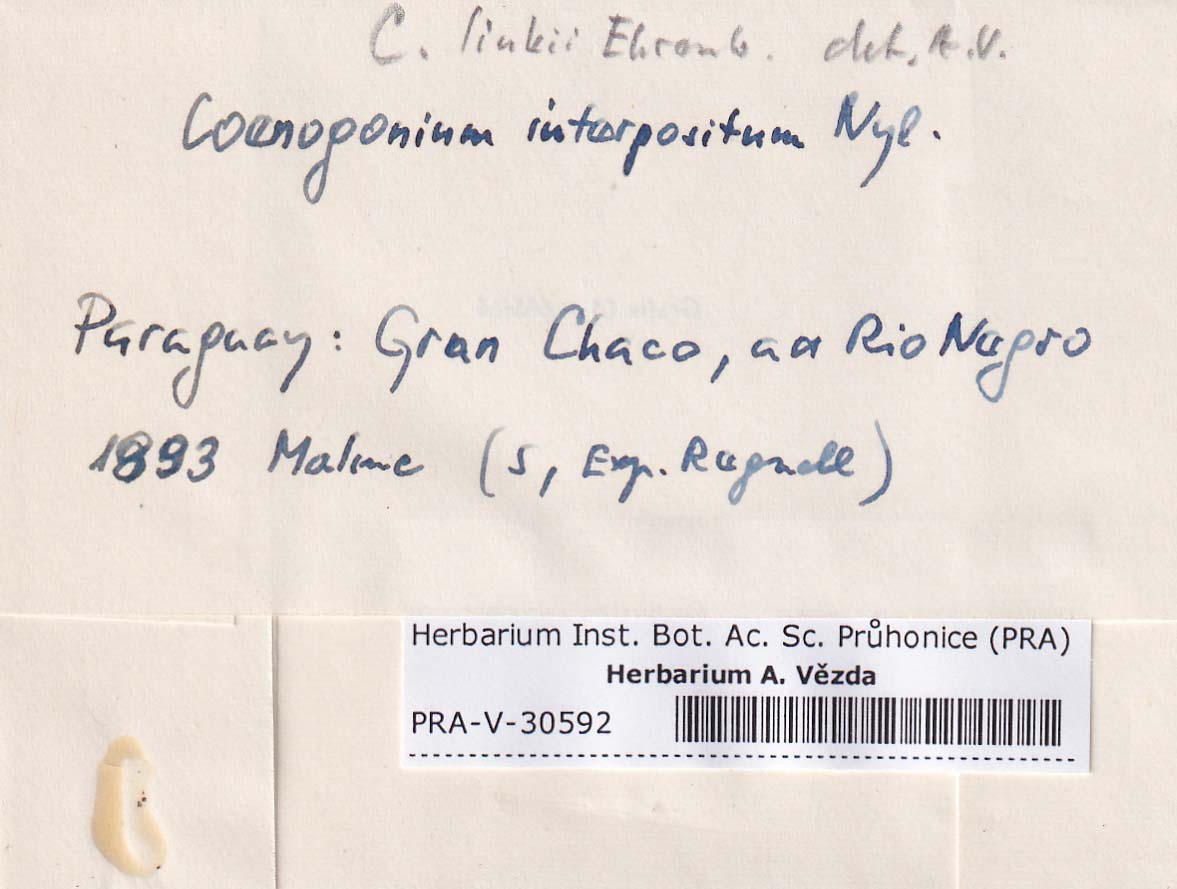 C. linkii Ehrenb. det. A.V.
Coenogonium interpositum Nyl.
Paraguay: Gran Chaco, ad Rio Negro
1893 Malme (S, Exp. Regnell)
Herbarium Inst. Bot. Ac. Sc. Průhonice (PRA)
Herbarium A. Vězda
PRA-V-30592